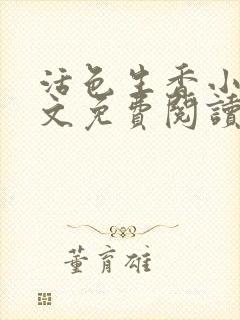 活色生香小
文免費閱讀
董育雄